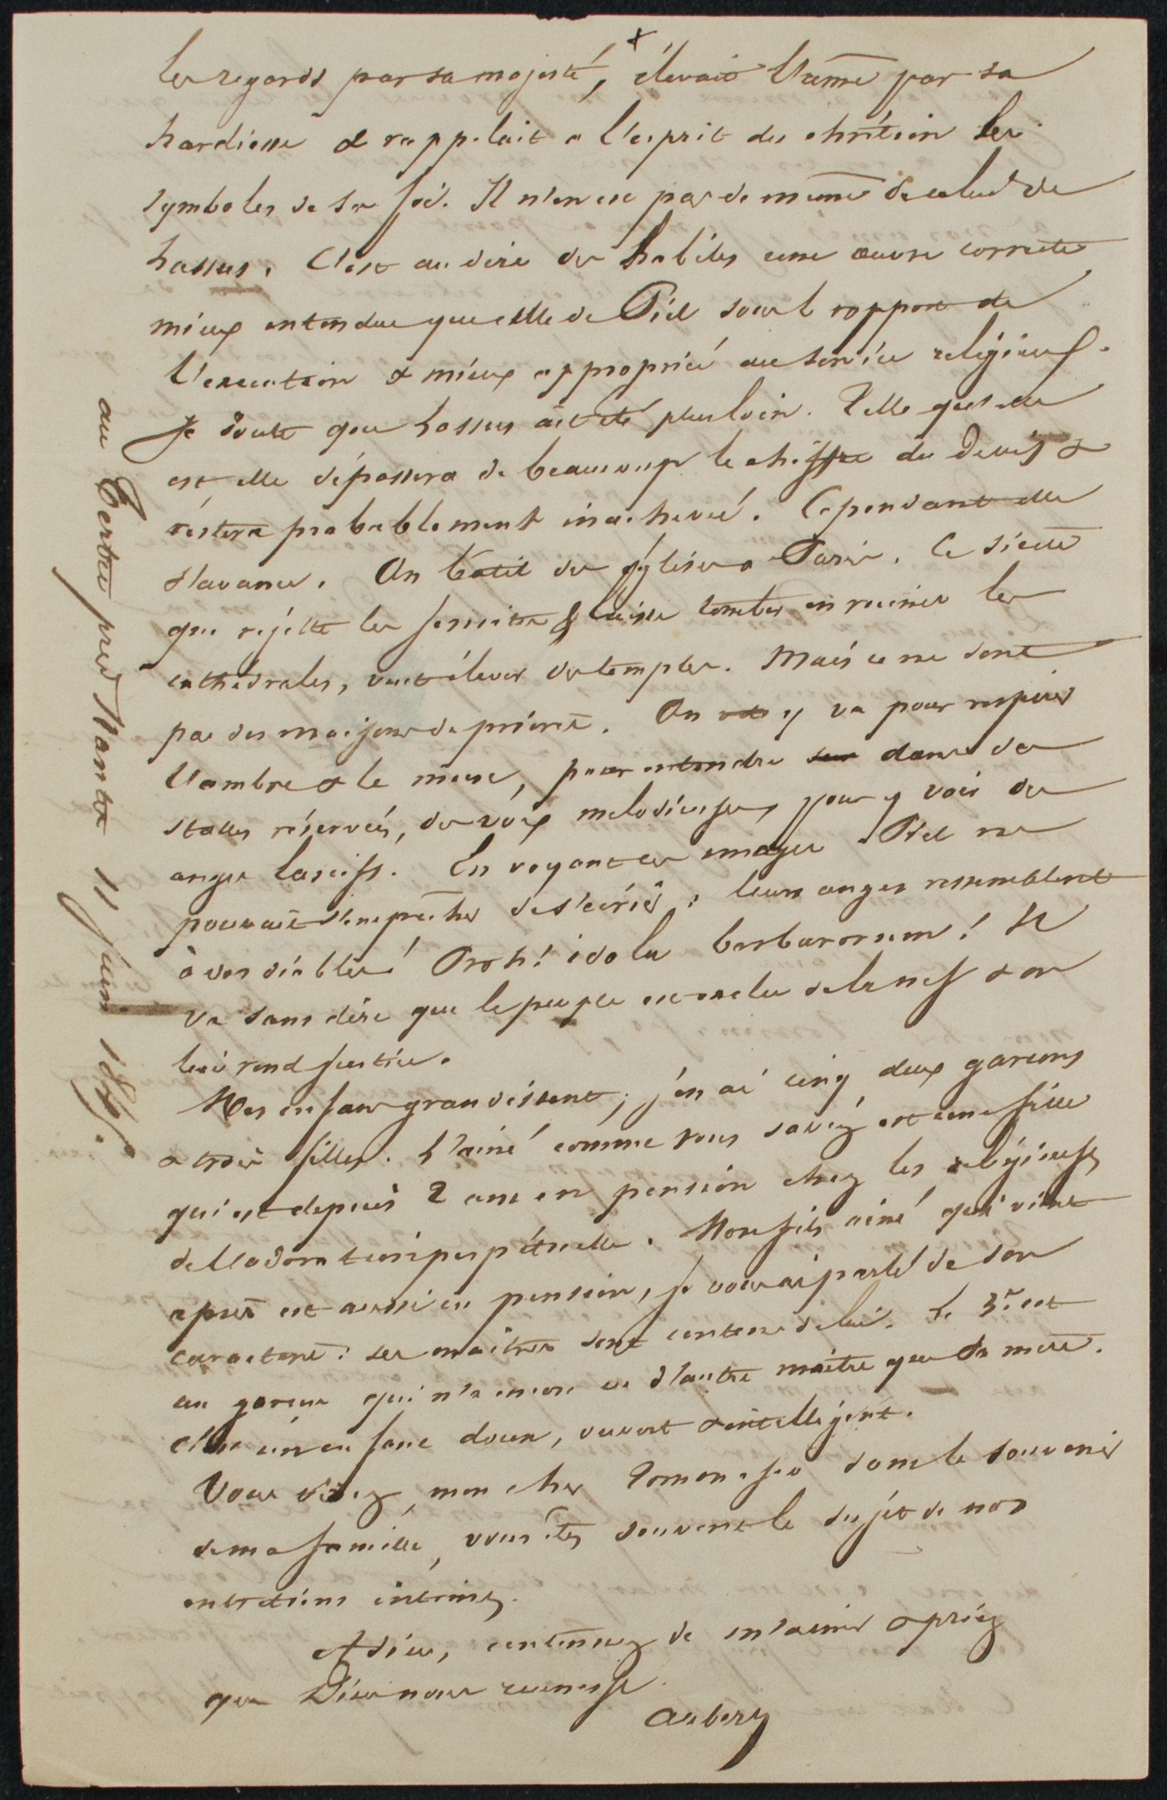 les regards par sa majesté, élevait l'âme par sa
hardiesse & rappelait a l'esprit du chrétien les
symboles de sa foi. Il n'en est pas de même de celui de
Lassus. C'est au dire des habiles une œuvre correcte
mieux entendue que celle de Piel sous le rapport de
l'execution & mieux approprié au service religieux.
Je doute que Lassus ait été plus loin. Telle qu'elle
est elle dépassera de beaucoup le chiffre du devis &
restera probablement inachevée. Cependant elle
s'avance. On batit des églises a Paris. Ce siecle
qui rejette les & laisse tomber en ruines les
cathédrales, veut élever des temples. Mais ce ne sont
pas des maisons de prière. On y va pour respirer
l'ombre & le musc, pour entendre dans des
stalles réservées, des voix melodieuses, pour y voir des
anges lascifs. En voyant ces images Piel ne
pouvait s'empêcher de s'écrier : leurs anges ressemblent
à vos diables! Proh! idola barbarorum! Il
va sans dire que le peuple est exclu de la nef & on
lui rend justice.
Mes enfans grandissent; j'en ai cinq deux garcons
& trois filles. L'ainé comme vous savez est une fille
qui est depuis 2 ans en pension chez les religieuses
de l'adoration perpétuelle. Mon fils ainé qui vient
après est aussi en pension, je vous ai parlé de son
caractere : ses maitres sont contens de lui. Le 3e est
un garcon qui n'a encore eu d'autre maitre que sa mere.
C'est un enfant doux, ouvert & intelligent.
Vous vivez mon cher dans le souvenir
de ma famille, vous êtes souvent le sujet de nos
entretiens intimes.
Adieu, continuez de m'aimer & priez
que Dieu nous reunisse.
Aubery
au Tertre près Nantes 11 juin 184